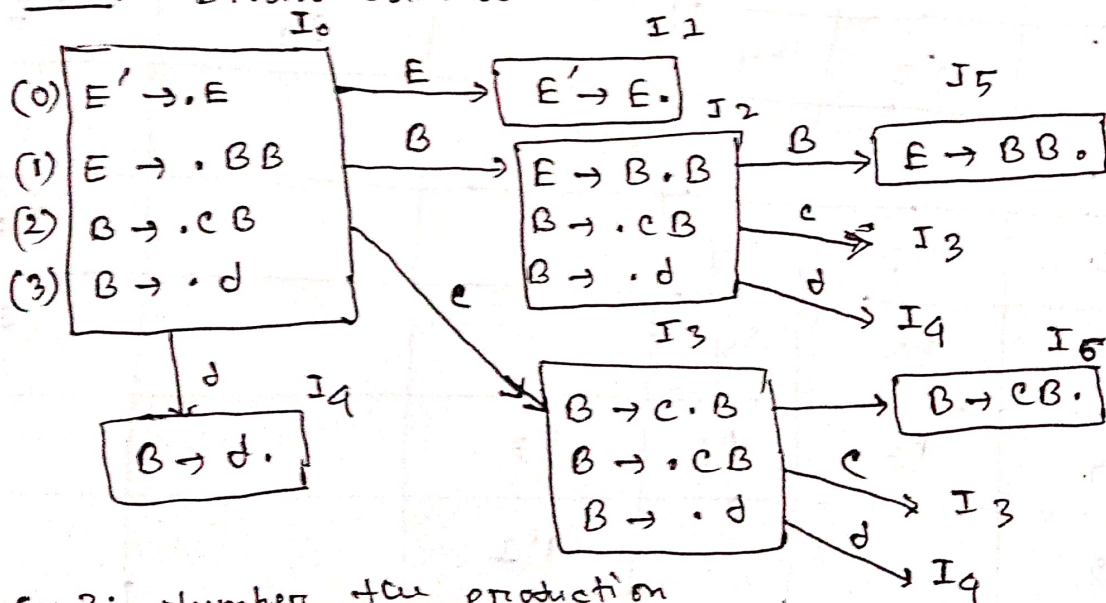 I0
(0) E' → .E
(1) E → . BB
(2) B → .CB
(3) B → . d
E
I1
E' → E.
B
I2
E → B.B
B → .CB
B → .d
B
I5
E → BB.
c
I3
d
I4
c
I3
B → C.B
B → .CB
B → .d
I6
B → CB.
c
I3
d
I4
d
I4
B → d.
2: Number the production